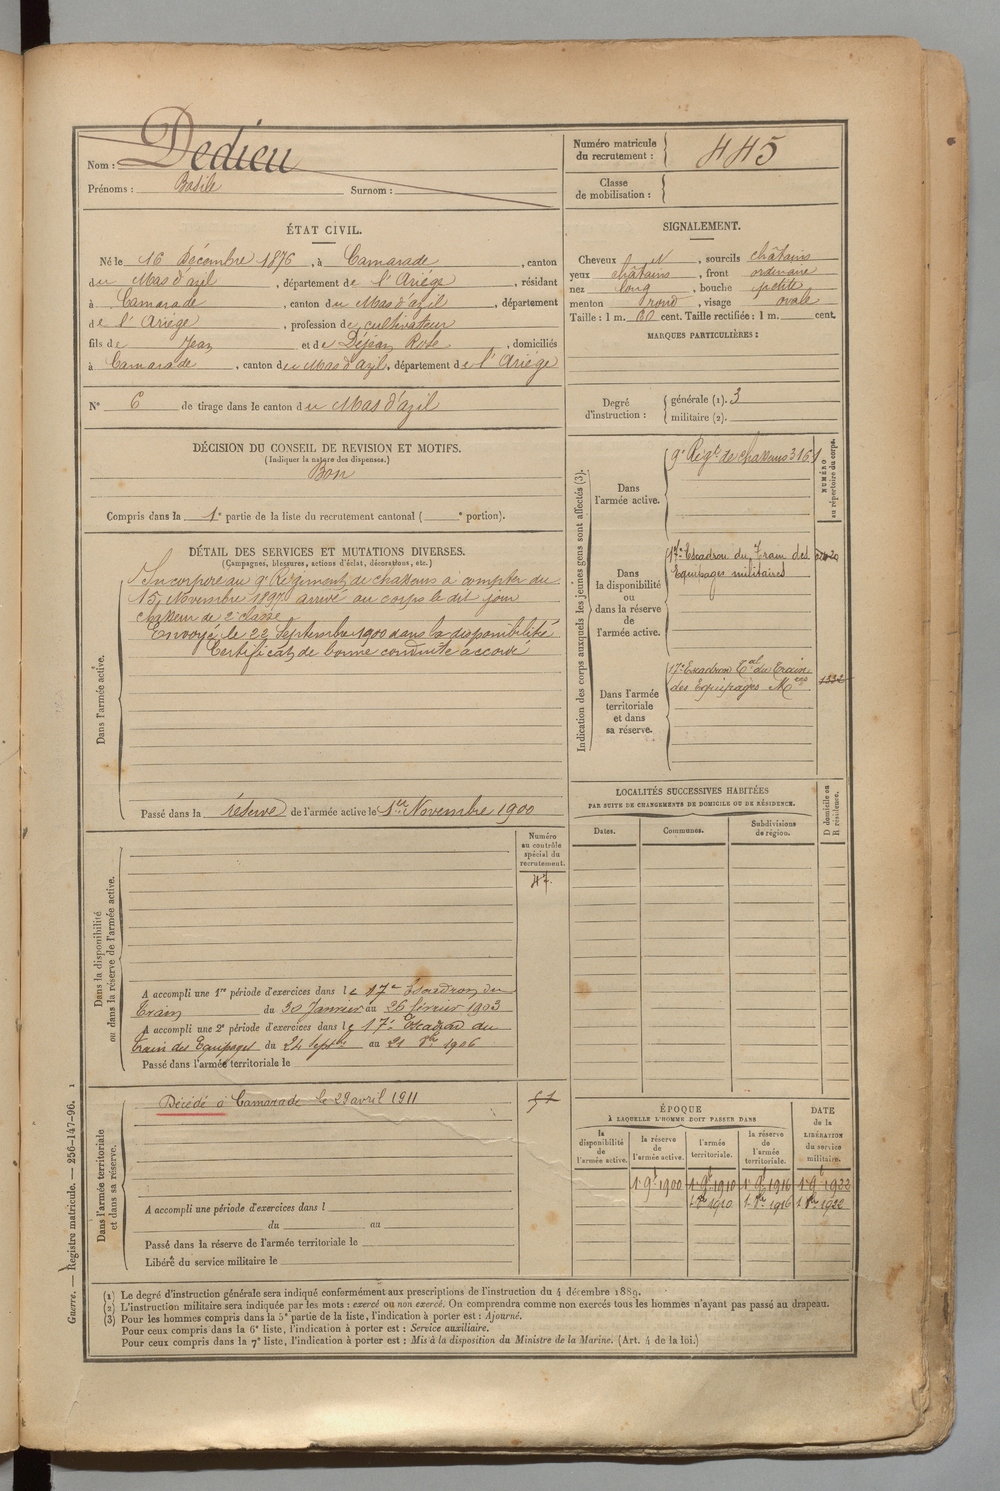 Nom : Dedieu
Prénoms : Basile Surnom :
Numéro matricule du recrutement : 445
Classe de mobilisation :
ÉTAT CIVIL.
Né le 16 Décembre 1876, à Camarade, canton
du Mas d'azil, département de l'Ariège, résidant
à Camarade, canton du Mas d'azil, département
de l'Ariège, profession de cultivateur
fils de Jean et de Déjean Rose, domiciliés
à Camarade, canton du Mas d'azil, département de l'Ariège
N° 6 de tirage dans le canton du Mas d'azil
SIGNALEMENT.
Cheveux N, sourcils châtains
yeux châtains, front ordinaire
nez long, bouche petite
menton rond, visage ovale
Taille : 1 m. 60 cent. Taille rectifiée : 1 m. cent.
MARQUES PARTICULIÈRES :
Degré d'instruction : générale (1). 3
militaire (2).
DÉCISION DU CONSEIL DE REVISION ET MOTIFS.
(Indiquer la nature des dispenses.)
Bon
Compris dans la 1e partie de la liste du recrutement cantonal ( e portion).
DÉTAIL DES SERVICES ET MUTATIONS DIVERSES.
(Campagnes, blessures, actions d'éclat, décorations, etc.)
Dans l'armée active.
Incorporé au 9e Régiment de chasseurs à compter du
15 Novembre 1897 arrivé au corps le dit jour
chasseur de 2e classe
Envoyé le 22 Septembre 1900 dans la disponibilité
Certificat de bonne conduite accordé
Passé dans la réserve de l'armée active le 1er Novembre 1900
Indication des corps auxquels les jeunes gens sont affectés (3).
NUMÉRO au répertoire du corps.
Dans l'armée active.
9e Régt de chasseurs 3161
Dans la disponibilité ou dans la réserve de l'armée active.
17e Escadron du Train des
Equipages militaires
Dans l'armée territoriale et dans sa réserve.
17e Escadron Tal du Train
des Equipages Mres
1332
LOCALITÉS SUCCESSIVES HABITÉES
PAR SUITE DE CHANGEMENTS DE DOMICILE OU DE RÉSIDENCE.
D domicile ou R résidence.
Dates. Communes. Subdivisions de région.
Dans la disponibilité ou dans la réserve de l'armée active.
Numéro au contrôle spécial du recrutement.
47.
A accompli une 1re période d'exercices dans le 17e Escadron du
Train du 30 Janvier au 26 février 1903
A accompli une 2e période d'exercices dans le 17e Escadron du
Train des Equipages du 24 Septbre au 21 8bre 1906
Passé dans l'armée territoriale le
Dans l'armée territoriale et dans sa réserve.
Décédé à Camarade le 29 avril 1911
A accompli une période d'exercices dans l
du au
Passé dans la réserve de l'armée territoriale le
Libéré du service militaire le
ÉPOQUE
À LAQUELLE L'HOMME DOIT PASSER DANS
DATE de la LIBÉRATION du service militaire.
la disponibilité de l'armée active. la réserve de l'armée active. l'armée territoriale. la réserve de l'armée territoriale.
1er 9b 1900 1er 9b 1910 1er 9b 1916 1er 9b 1922
1er 8bre 1910 1er 8bre 1916 1er 8bre 1922
(1) Le degré d'instruction générale sera indiqué conformément aux prescriptions de l'instruction du 4 décembre 1889.
(2) L'instruction militaire sera indiquée par les mots : exercé ou non exercé. On comprendra comme non exercés tous les hommes n'ayant pas passé au drapeau.
(3) Pour les hommes compris dans la 5e partie de la liste, l'indication à porter est : Ajourné.
Pour ceux compris dans la 6e liste, l'indication à porter est : Service auxiliaire.
Pour ceux compris dans la 7e liste, l'indication à porter est : Mis à la disposition du Ministre de la Marine. (Art. 4 de la loi.)
Guerre. — Registre matricule. — 256-147-96. 1